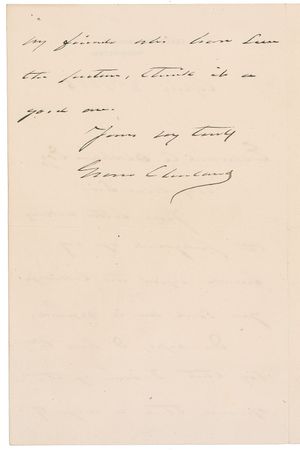 my friends who have seen
the picture, think it a
good one.
Yours very truly
Grover Cleveland